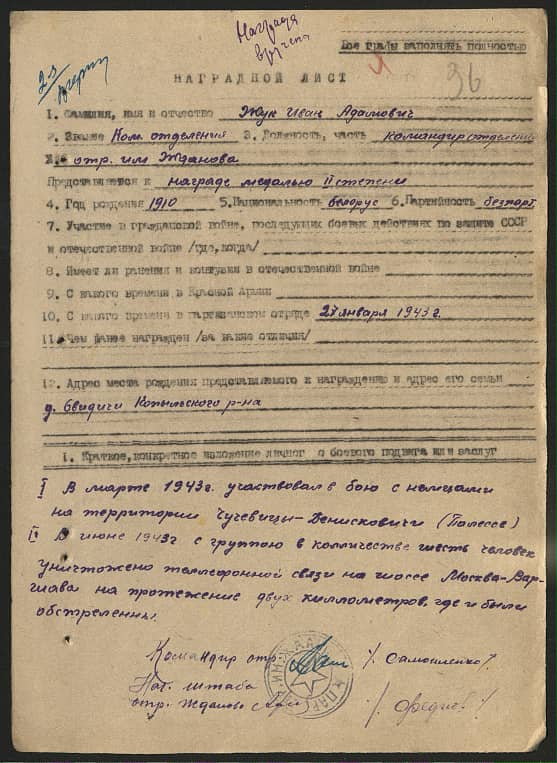 Награда
вручена
Все графы заполнять полностью
36
НАГРАДНОЙ ЛИСТ
1. Фамилия, имя и отчество Жук Иван Адамович
2. Звание Ком. отделения 3. Должность, часть командир отделения
отр. им Жданова
Представляется к награде медалью II степени
4. Год рождения 1910 5. Национальность белорус 6. Партийность безпарт
7. Участие в гражданской войне, последующих боевых действиях по защите СССР
и отечественной войне /где, когда/
8. Имеет ли ранения и контузии в отечественной войне
9. С какого времени в Красной Армии
10. С какого времени в партизанском отряде 27 января 1943 г.
11. Чем ранее награжден /за какие отличия/
12. Адрес места рождения представляемого к награждению и адрес его семьи
д. Свидичи Копыльского р-на
1. Краткое, конкретное изложение личног о боевого подвига или заслуг
I В марте 1943 г. участвовал в бою с немцами
на территории Чучевицы-Денисковичи (Полесье)
II В июне 1943 г с группою в количестве шесть человек
уничтожено теллефонной связи на шоссе Москва-Вар-
шава на протежение двух киллометров, где и были
обстреленны.
Командир отр. /Самойленко/
Нач. штаба
отр. Жданова